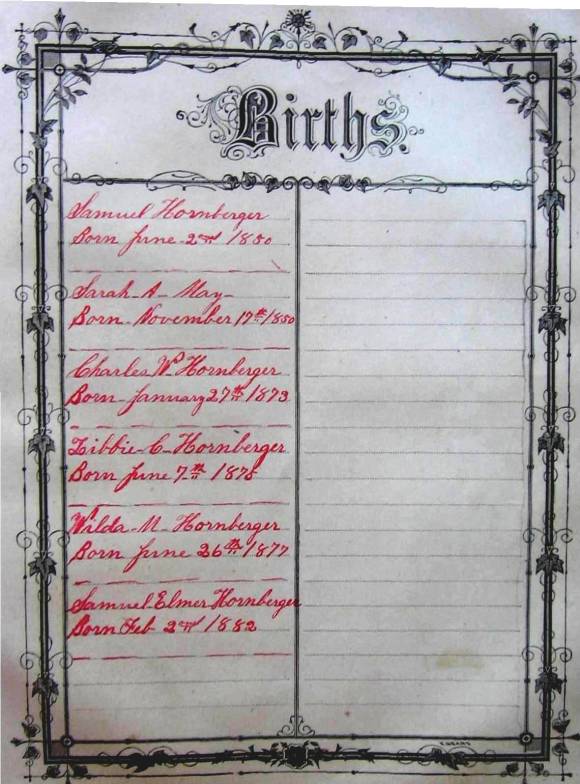 Births.
Samuel Hornberger
Born June 2nd 1850
Sarah A May
Born November 17th 1850
Charles W Hornberger
Born January 27th 1873
Libbie C Hornberger
Born June 7th 1875
Wilda M Hornberger
Born June 26th 1877
Samuel Elmer Hornberger
Born Feb 2nd 1882